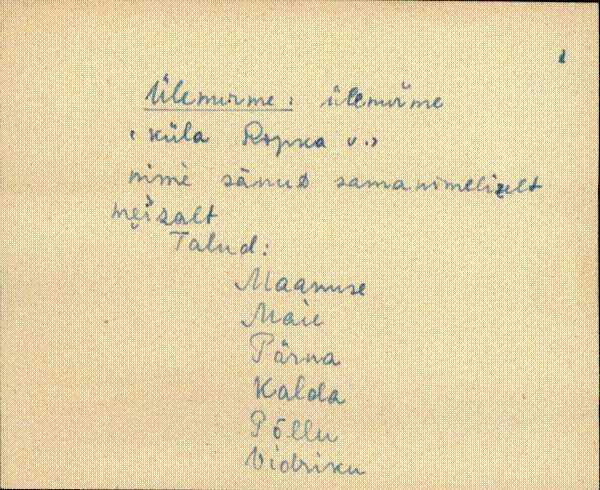 1
Ülemurme: ülemuŕme
‹küla Ropka v.›
nimè sānuᴅ samanimelizelt
mei̯zalt
Talud:
Maanuse
Maie
Pärna
Kalda
Põllu
Vidriku